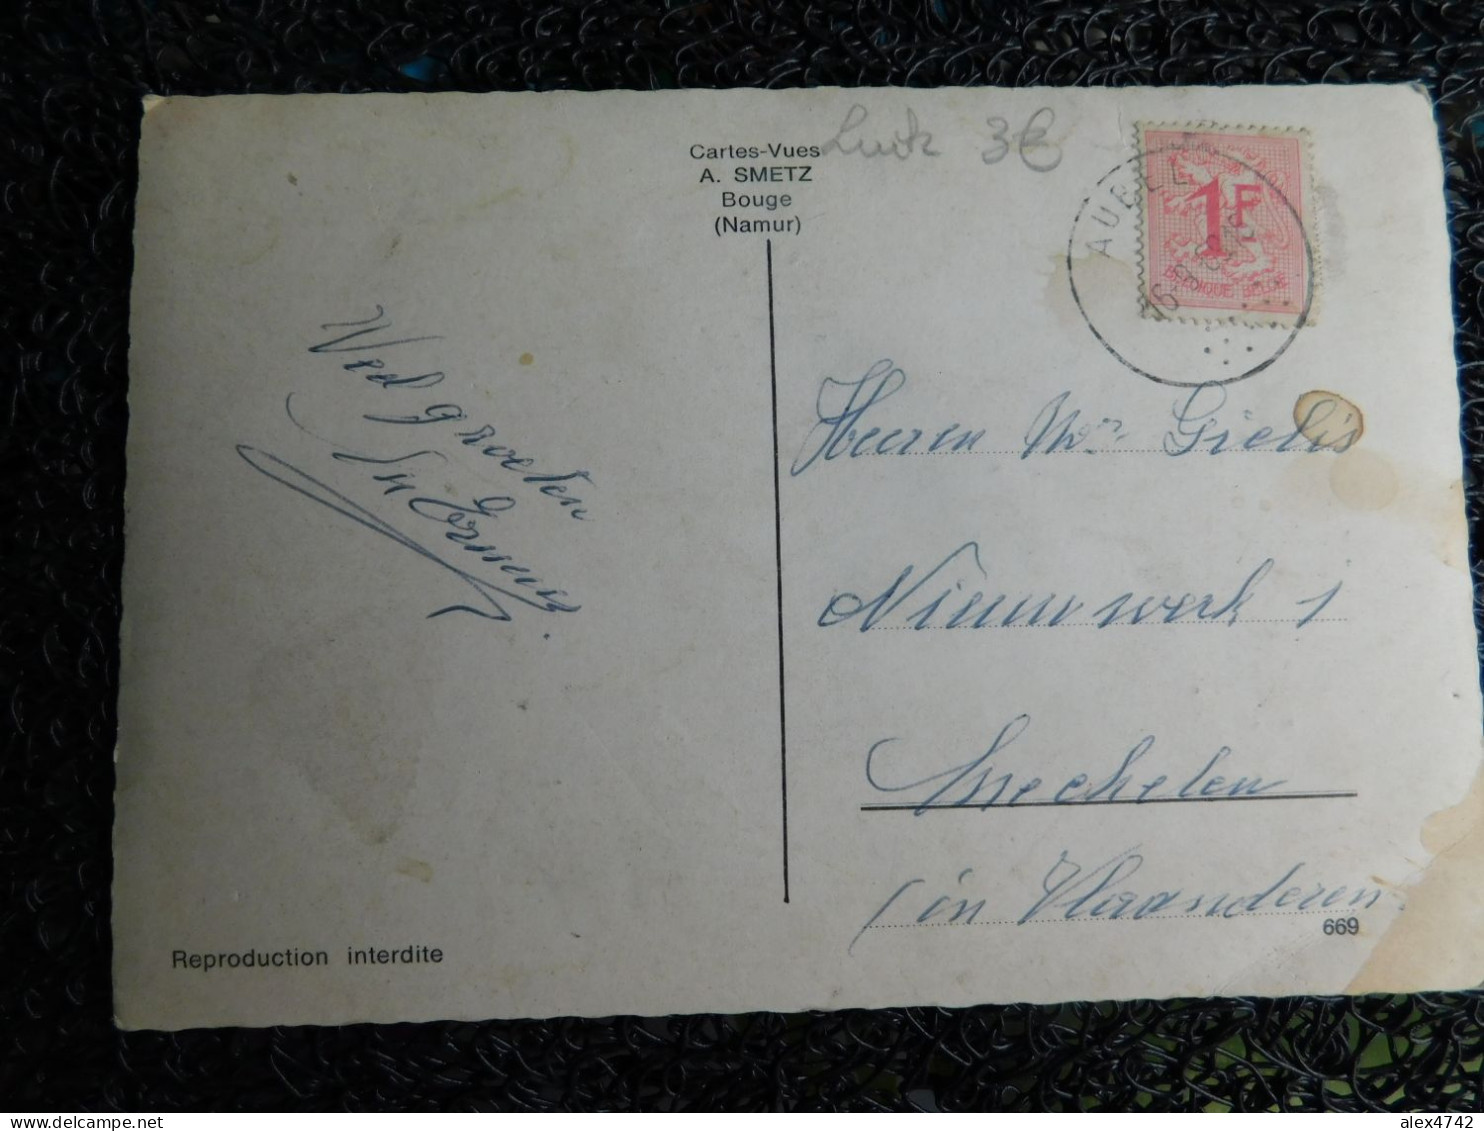 Cartes-Vues
A. SMETZ
Bouge
(Namur)
3€
AUBEL
1F
BELGIQUE BELGIE
Veel groeten
Heeren Mr Gielis
Nieuwwerk 1
Mechelen
(in Vlaanderen
669
Reproduction interdite
alex4742